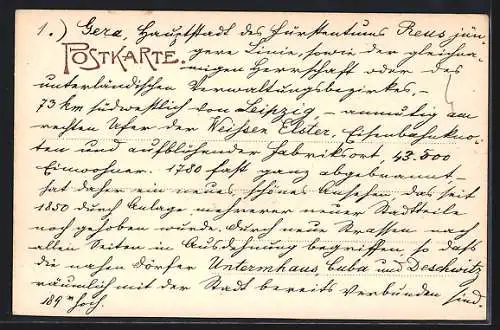 1.) Gera, Hauptstadt des Fürstentums Reus jün-
POSTKARTE.
gere Linie, sowie der gleichna-
migen Herrschaft oder des
unterländischen Verwaltungsbezirkes, –
73 km südwestlich von Leipzig – anmutig am
rechten Ufer der Weißen Elster, Eisenbahnkno-
ten und aufblühender Fabriksort, 43.500
Einwohner. 1780 fast ganz abgebrannt –
hat daher ein neues, schönes Ansehen, das seit
1850 durch Anlage mehrerer neuer Stadtteile
noch gehoben wurde. Durch neue Strassen nach
allen Seiten in Ausdehnung begriffen, so daß
die nahen Dörfer Untermhaus, Cuba und Deschwitz
räumlich mit der Stadt bereits verbunden sind.
189 m hoch.